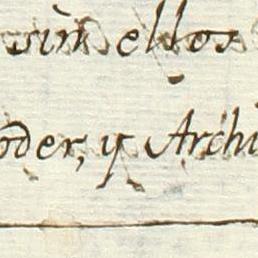 sin ellos
oder, y Archi